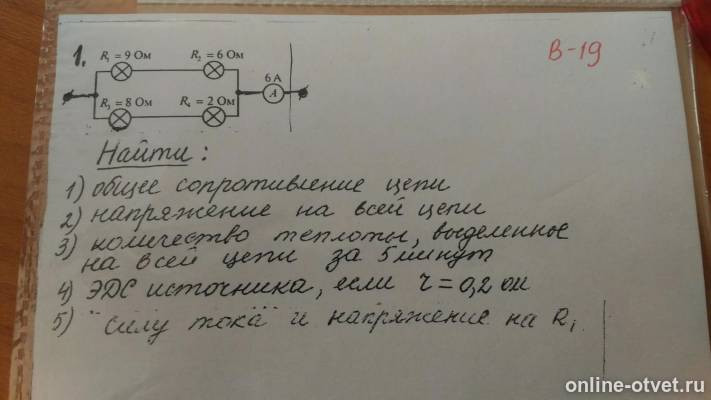 В-19
1. R₁ = 9 Ом R₂ = 6 Ом
6 А
А
R₃ = 8 Ом R₄ = 2 Ом
Найти:
1) общее сопротивление цепи
2) напряжение на всей цепи
3) количество теплоты, выделенное
на всей цепи за 5 минут
4) ЭДС источника, если r = 0,2 ом
5) "силу тока" и напряжение на R₁
online-otvet.ru